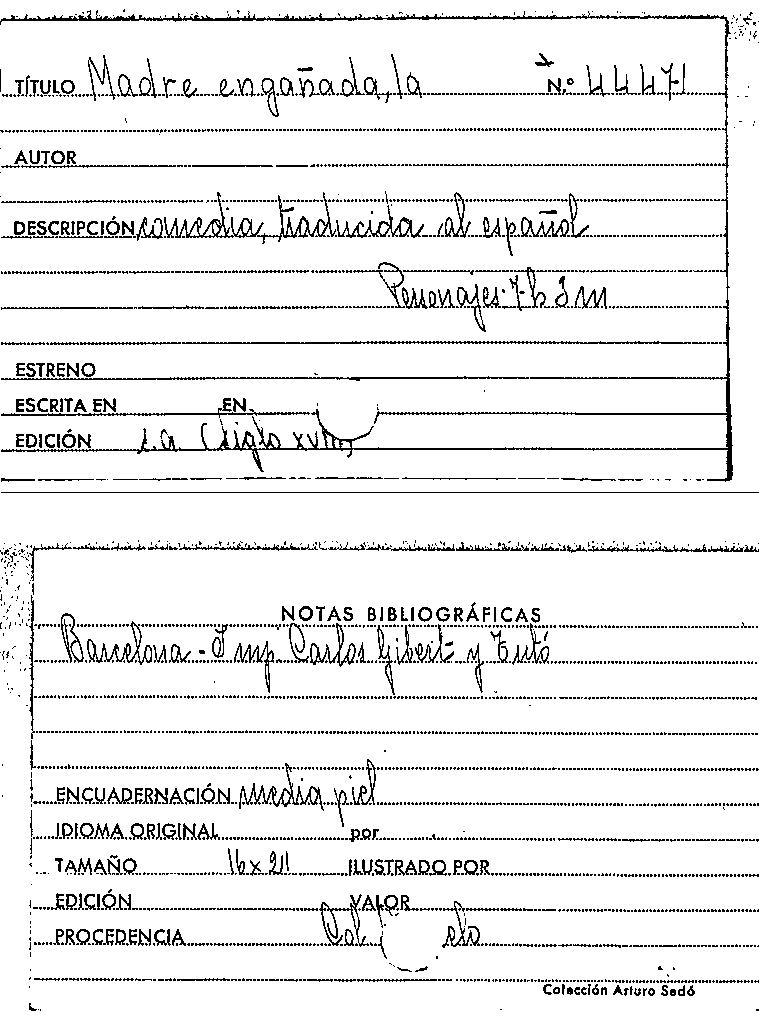 TÍTULO Madre engañada, la N.º 44471
AUTOR
DESCRIPCIÓN comedia, traducida al español
Personajes: 7 h 3 m
ESTRENO
ESCRITA EN EN
EDICIÓN s.a. (siglo XVIII)
NOTAS BIBLIOGRÁFICAS
Barcelona - Imp Carlos Gibert y Tutó
ENCUADERNACIÓN media piel
IDIOMA ORIGINAL por
TAMAÑO 16 x 21 ILUSTRADO POR
EDICIÓN VALOR
PROCEDENCIA Col
Colección Arturo Sedó